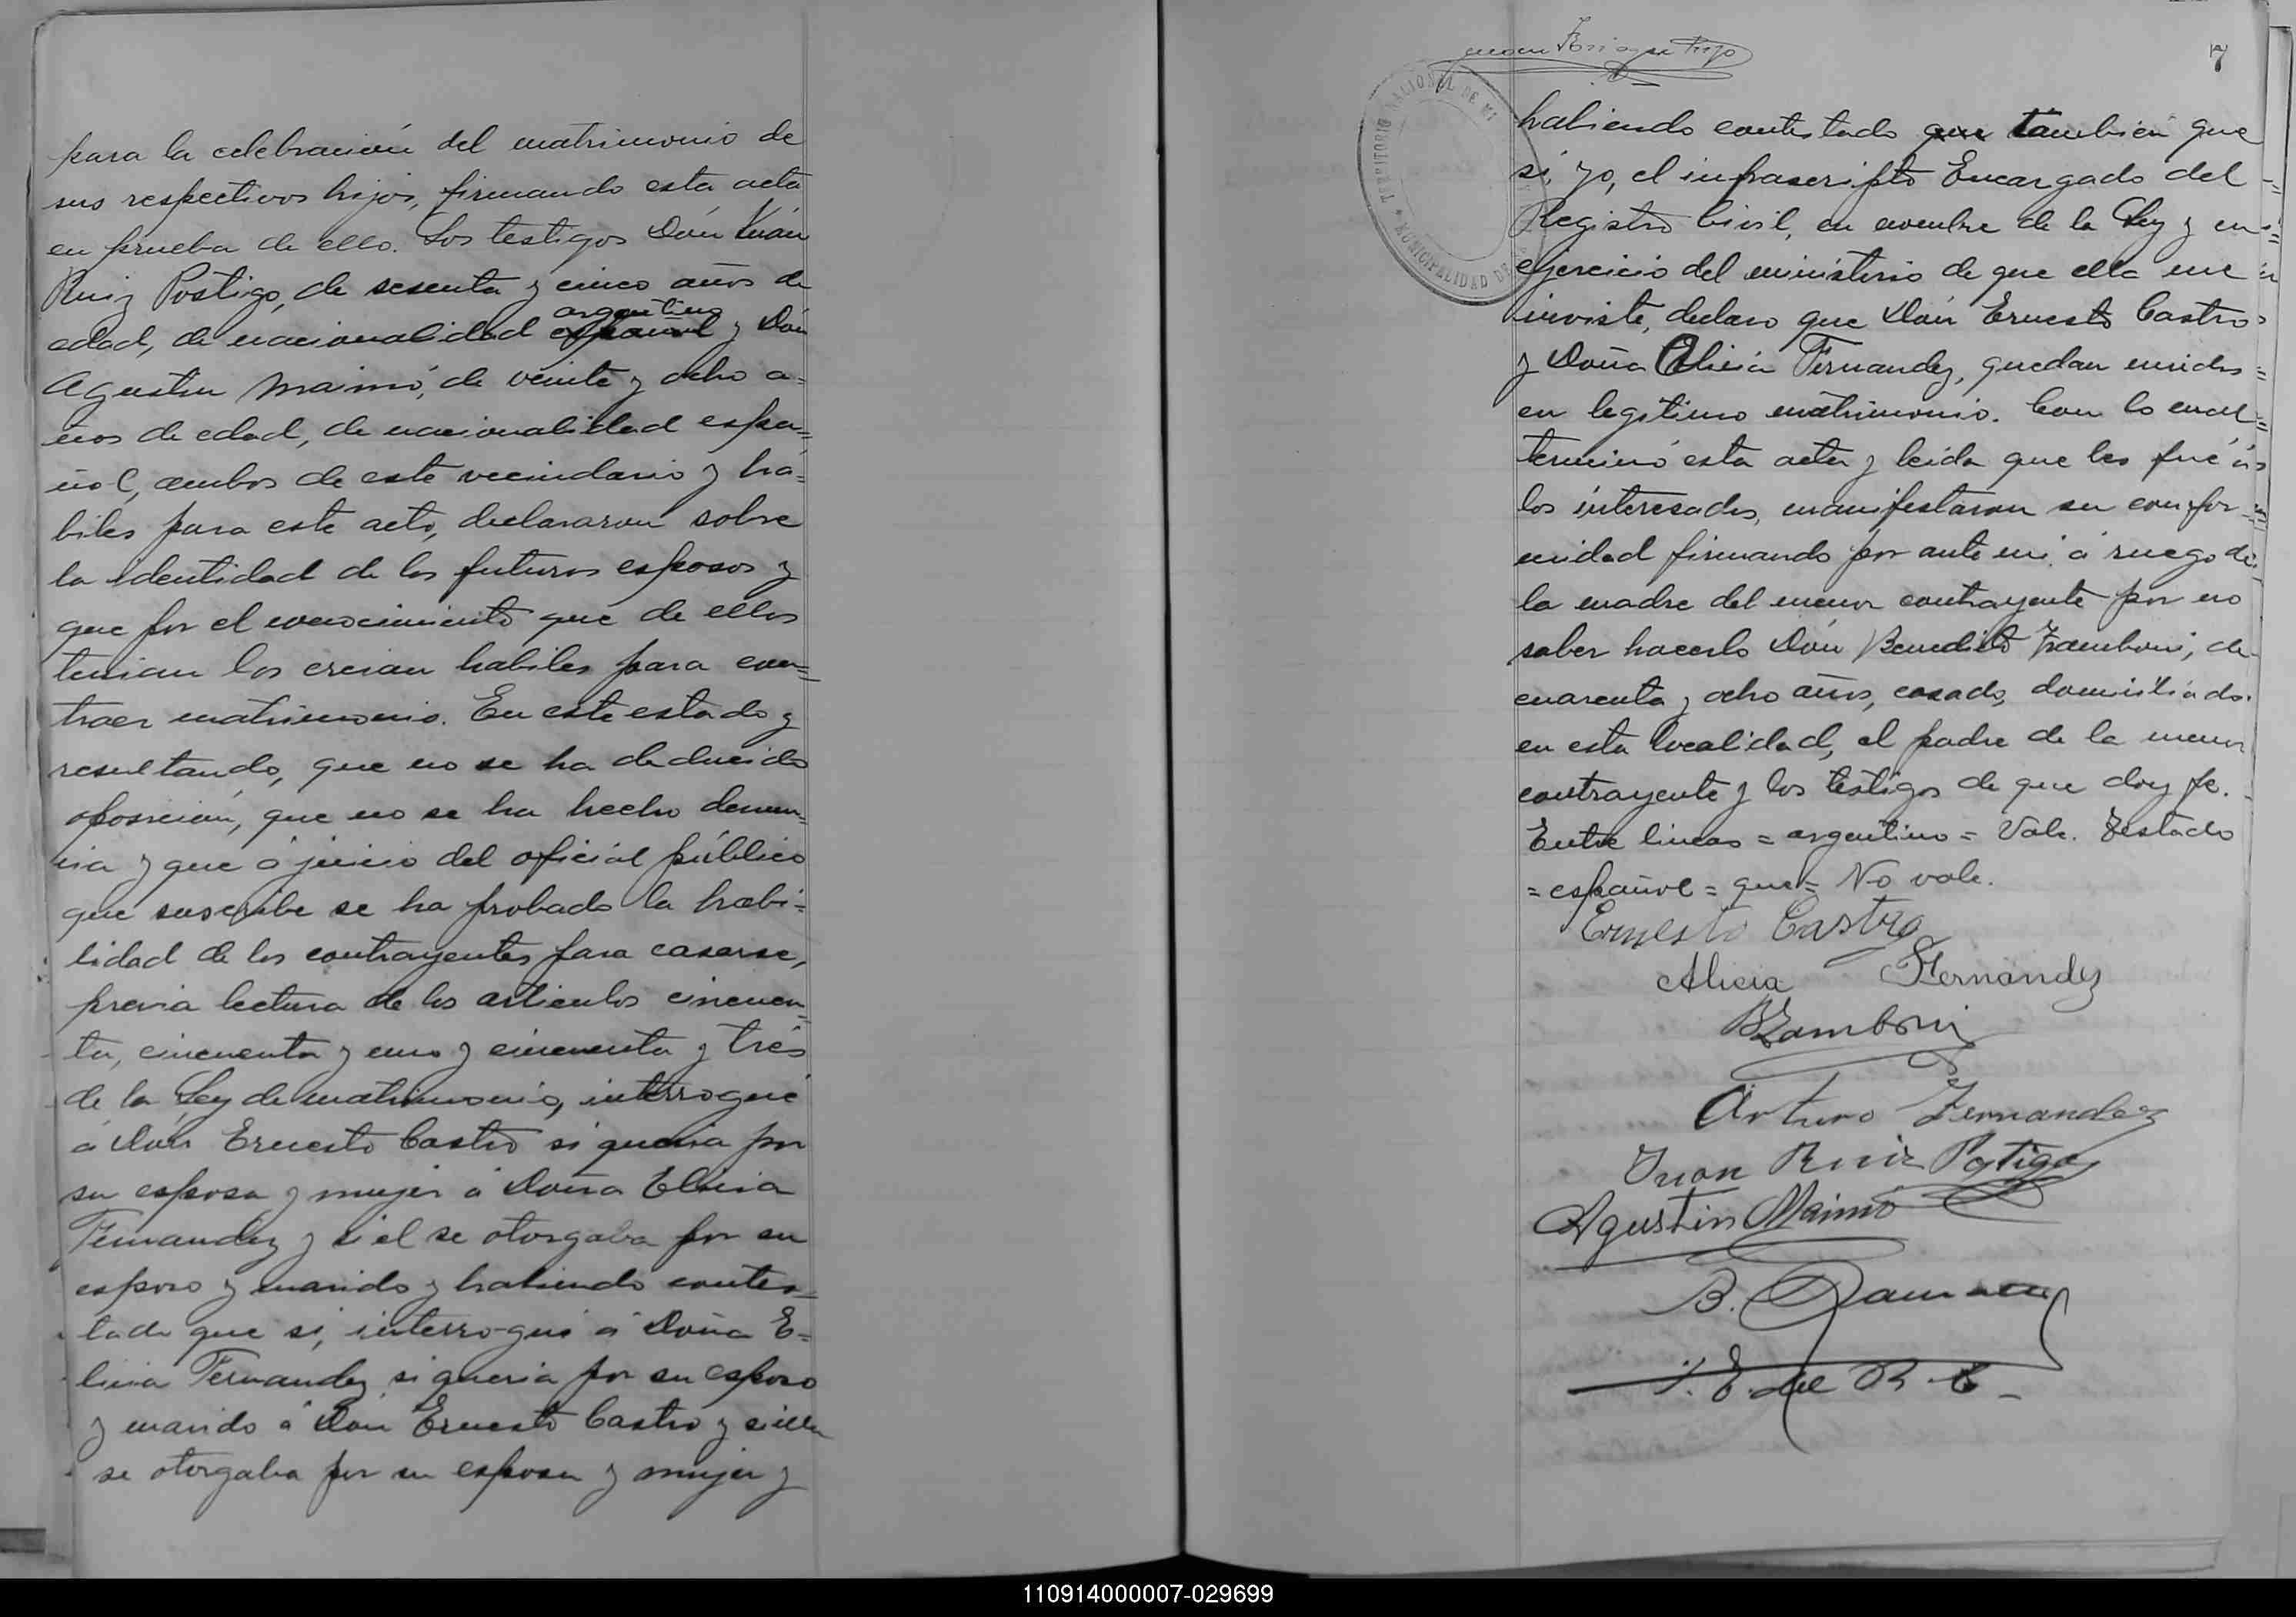 para la celebración del matrimonio de
sus respectivos hijos, firmando esta acta
en prueba de ello. Los testigos Don Juan
Ruiz Postigo, de sesenta y cinco años de
argentino
edad, de nacionalidad español y Don
Agustin Maimó, de veinte y ocho a=
ños de edad, de nacionalidad espa=
ñol, ambos de este vecindario y ha=
biles para este acto, declararon sobre
la identidad de los futuros esposos y
que por el conocimiento que de ellos
tenian los creian habiles para con=
traer matrimonio. En este estado y
resultando, que no se ha deducido
oposicion, que no se ha hecho denun=
cia y que á juicio del oficial público
que suscribe se ha probado la habi=
lidad de los contrayentes para casarse,
previa lectura de los articulos cincuen=
ta, cincuenta y uno y cincuenta y tres
de la Ley de matrimonio, interrogué
á Don Ernesto Castro si queria por
su esposa y mujer á Doña Elicia
Fernandez y si el se otorgaba por su
esposo y marido y habiendo contes=
tado que si, interrogué á Doña E=
licia Fernandez si queria por su esposo
y marido á Don Ernesto Castro y si ella
se otorgaba por su esposa y mujer y
7
TERRITORIO NACIONAL DE MI
MUNICIPALIDAD DE
habiendo contestado que tambien que
si, yo, el infrascripto Encargado del
Registro Civil, en nombre de la Ley y en
ejercicio del ministerio de que ella me
inviste, declaro que Don Ernesto Castro
y Doña Elicia Fernandez, quedan unidos
en legítimo matrimonio. Con lo cual
terminó esta acta y leida que les fué á
los interesados, manifestaron su confor
midad firmando por ante mi, á ruego de
la madre del menor contrayente por no
saber hacerlo Don Benedicto Zamboni, de
cuarenta y ocho años, casado, domiciliado
en esta localidad, el padre de la menor
contrayente y los testigos de que doy fe.
Entre lineas = argentino = Vale. Testado
= español = que = No vale.
Ernesto Castro
Alicia Fernandez
BZamboni
Arturo Fernandez
Juan Ruiz Postigo
Agustin Maimó
B.
E. del R. C.
110914000007-029699